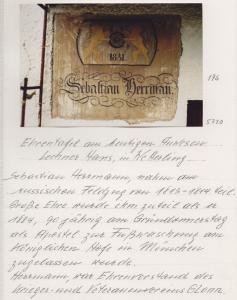 1831.
Sebastian Herrman.
176
5720
Ehrentafel am heutigen Anwesen
Lechner Hans, in
Sebastian Herrmann, nahm am
russischen Feldzug von 1813-1814 teil.
Große Ehre wurde ihm zuteil als er
1884, 90 jährig am Gründonnerstag
als Apostel zur Fußwaschung am
königlichen Hofe in München
zugelassen wurde.
Herrmann, war Ehrenvorstand des
Krieger- und Veteranenvereins Glonn.